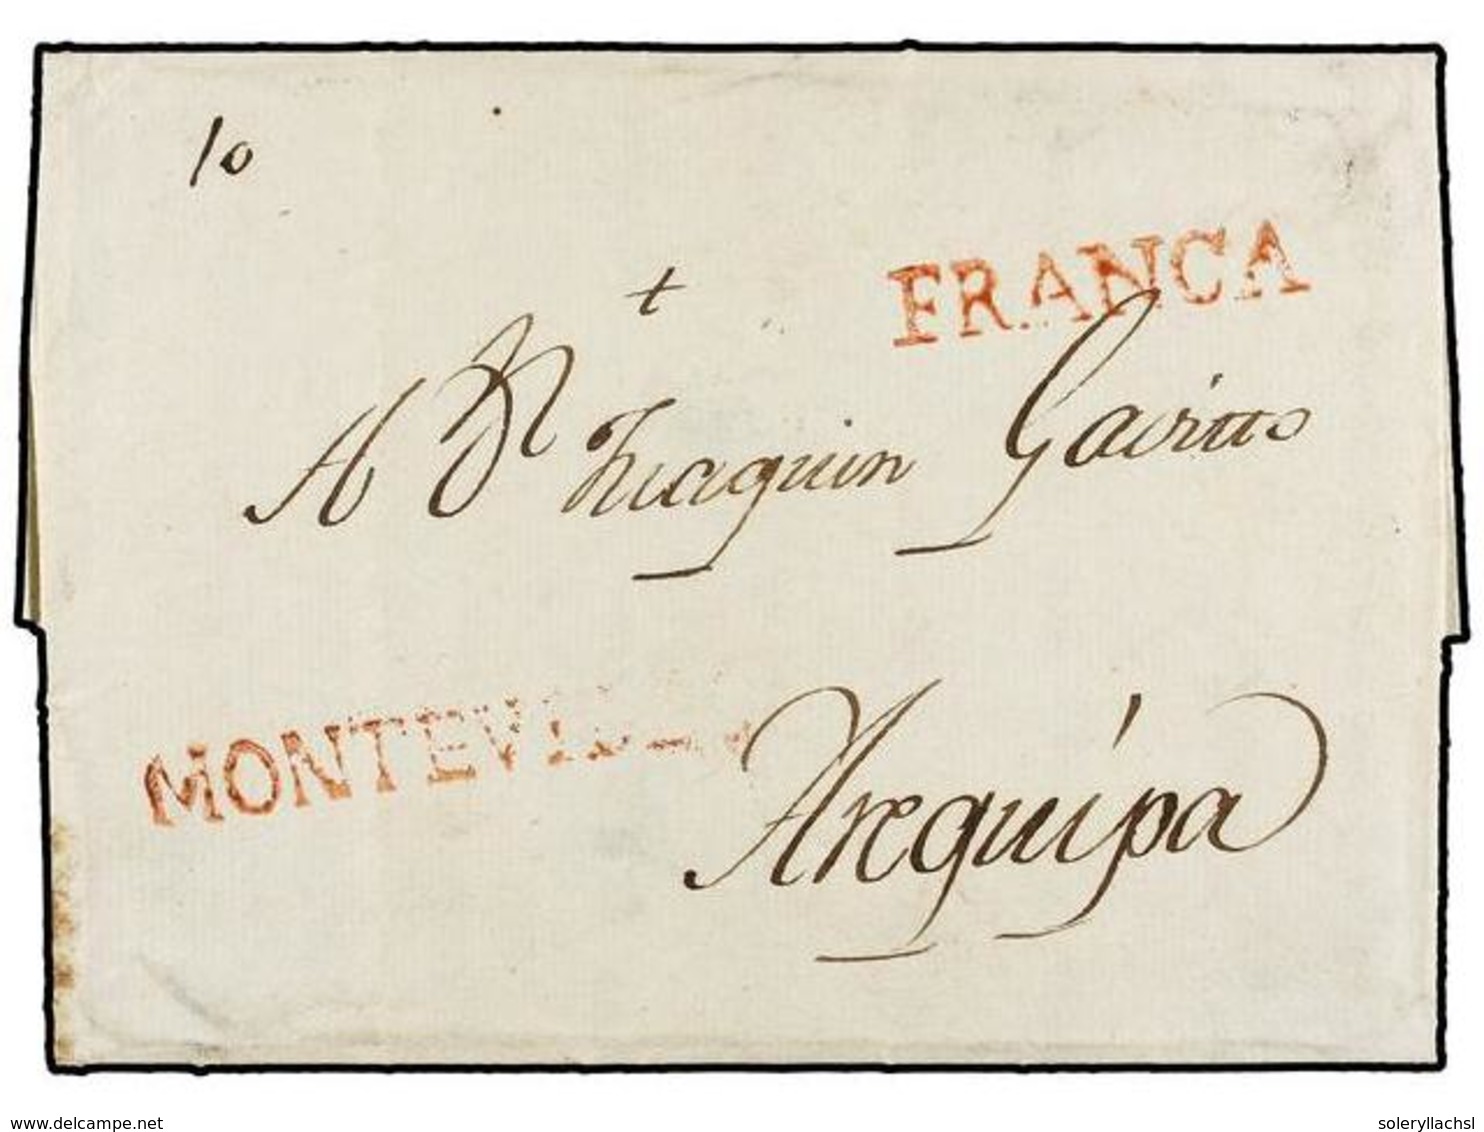 10
FRANCA
+
A Dn Juaquin Gavitto
MONTEVIDEO
Arequípa
delcampe.net
soleryllachsl